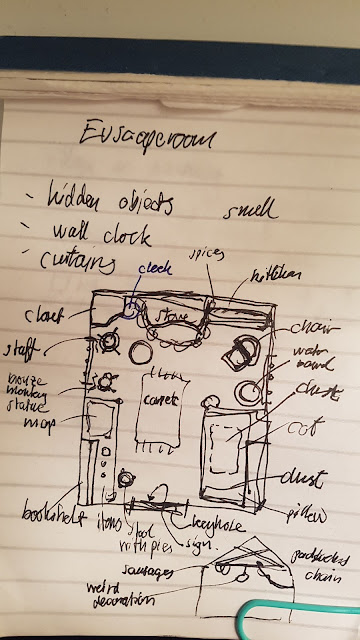 Evscaperoom
- hidden objects
smell
- wall clock
- curtains
spices
clock
kitchen
closet
stove
chair
staff
water
barrel
bronze
monkey
statue
chest
carpet
cot
map
dust
bookshelf
items
stool
with pies
sign
keyhole
pillow
sausages
padlocked
chain
weird
decoration